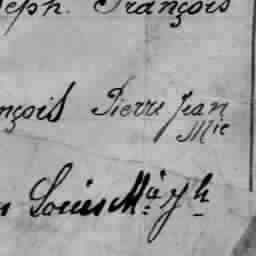 seph. François
nçois Pierre Jean
Mie
n Louis Mie Jh